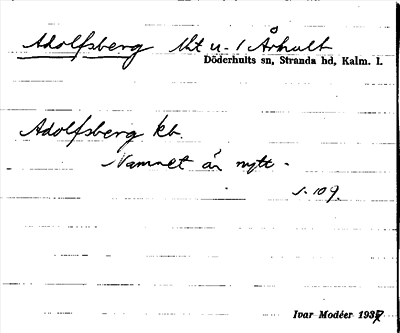 Adolfsberg lht u. /Århult
Döderhults sn, Stranda hd, Kalm. l.
Adolfsberg kb.
Namnet är nytt.
s. 109.
Ivar Modéer 1937